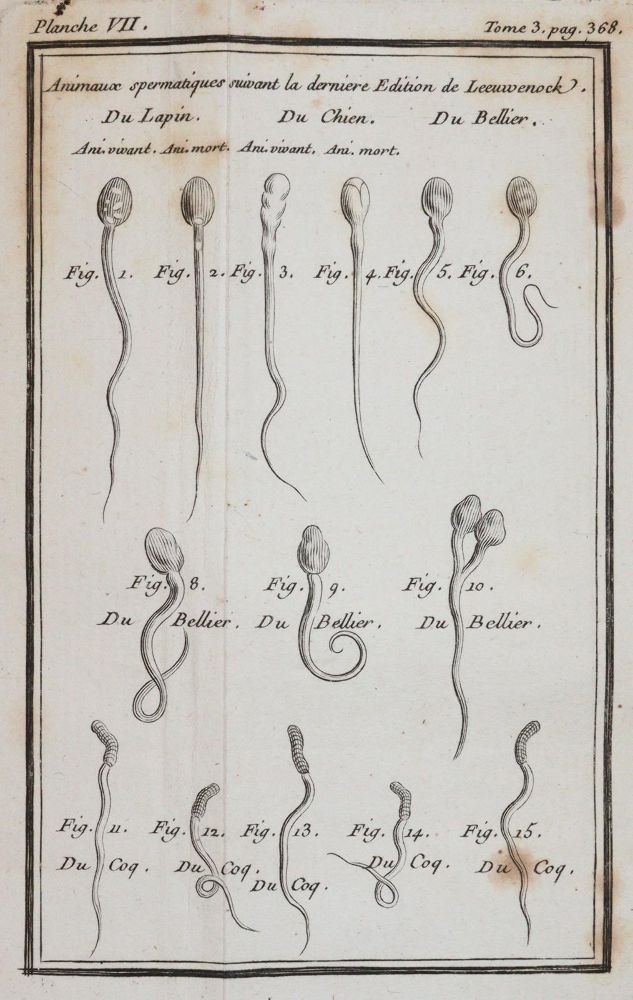 Planche VII. Tome 3. pag. 368.
Animaux spermatiques suivant la derniere Edition de Leeuwenock.
Du Lapin. Du Chien. Du Bellier.
Ani. vivant. Ani. mort. Ani. vivant. Ani. mort.
Fig. 1. Fig. 2. Fig. 3. Fig. 4. Fig. 5. Fig. 6.
Fig. 8. Fig. 9. Fig. 10.
Du Bellier. Du Bellier. Du Bellier.
Fig. 11. Fig. 12. Fig. 13. Fig. 14. Fig. 15.
Du Coq. Du Coq. Du Coq. Du Coq. Du Coq.